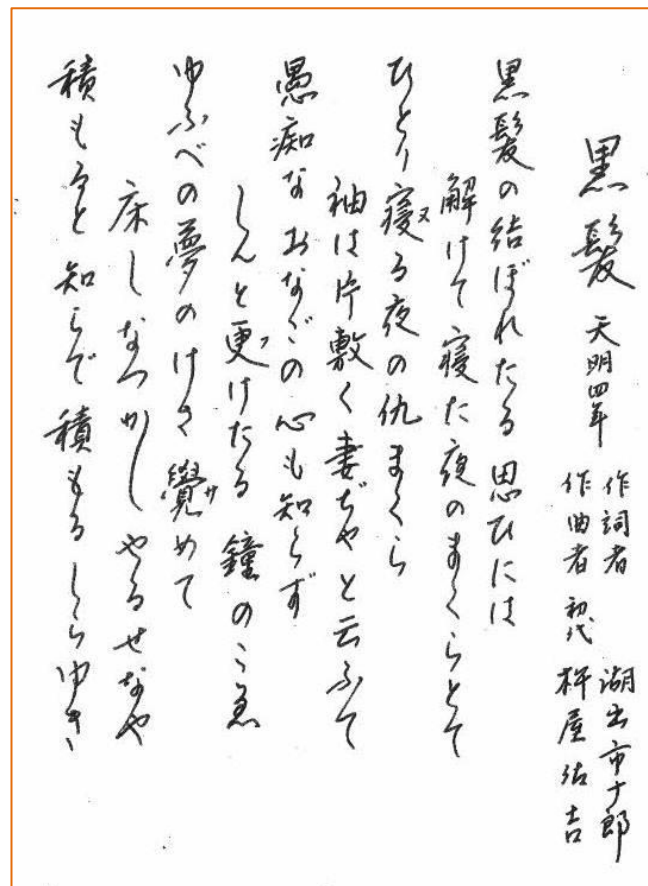 黒髪 天明四年
作詞者 湖出市十郎
作曲者 初代 杵屋佐吉
黒髪の結ぼれたる 思ひには
解けて寝た夜のまくらとて
ひとり寝る夜の仇まくら
袖は片敷く妻ぢやと云ふて
愚痴なおなごの心も知らず
しんと更けたる 鐘のこゑ
ゆふべの夢のけさ覺めて
床しなつかし やるせなや
積もると知らで 積もるしらゆき